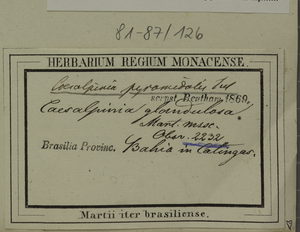 81-87/126
HERBARIUM REGIUM MONACENSE.
Caesalpinia pyramidalis Tul
scrpsit Bentham 1869.
Caesalpinia glandulosa
Mart. mssc.
Obsr. 2232
Brasilia Provinc. Bahia in Catingas.
Martii iter brasiliense.